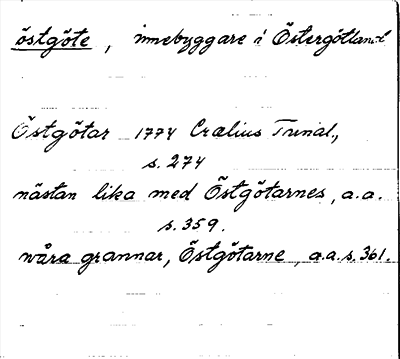 östgöte, innebyggare i Östergötland
Östgötar 1774 Crælius Tunal.,
s. 274
nästan lika med Östgötarnes, a.a.
s. 359.
wåra grannar, Östgötarne, a.a. s. 361.